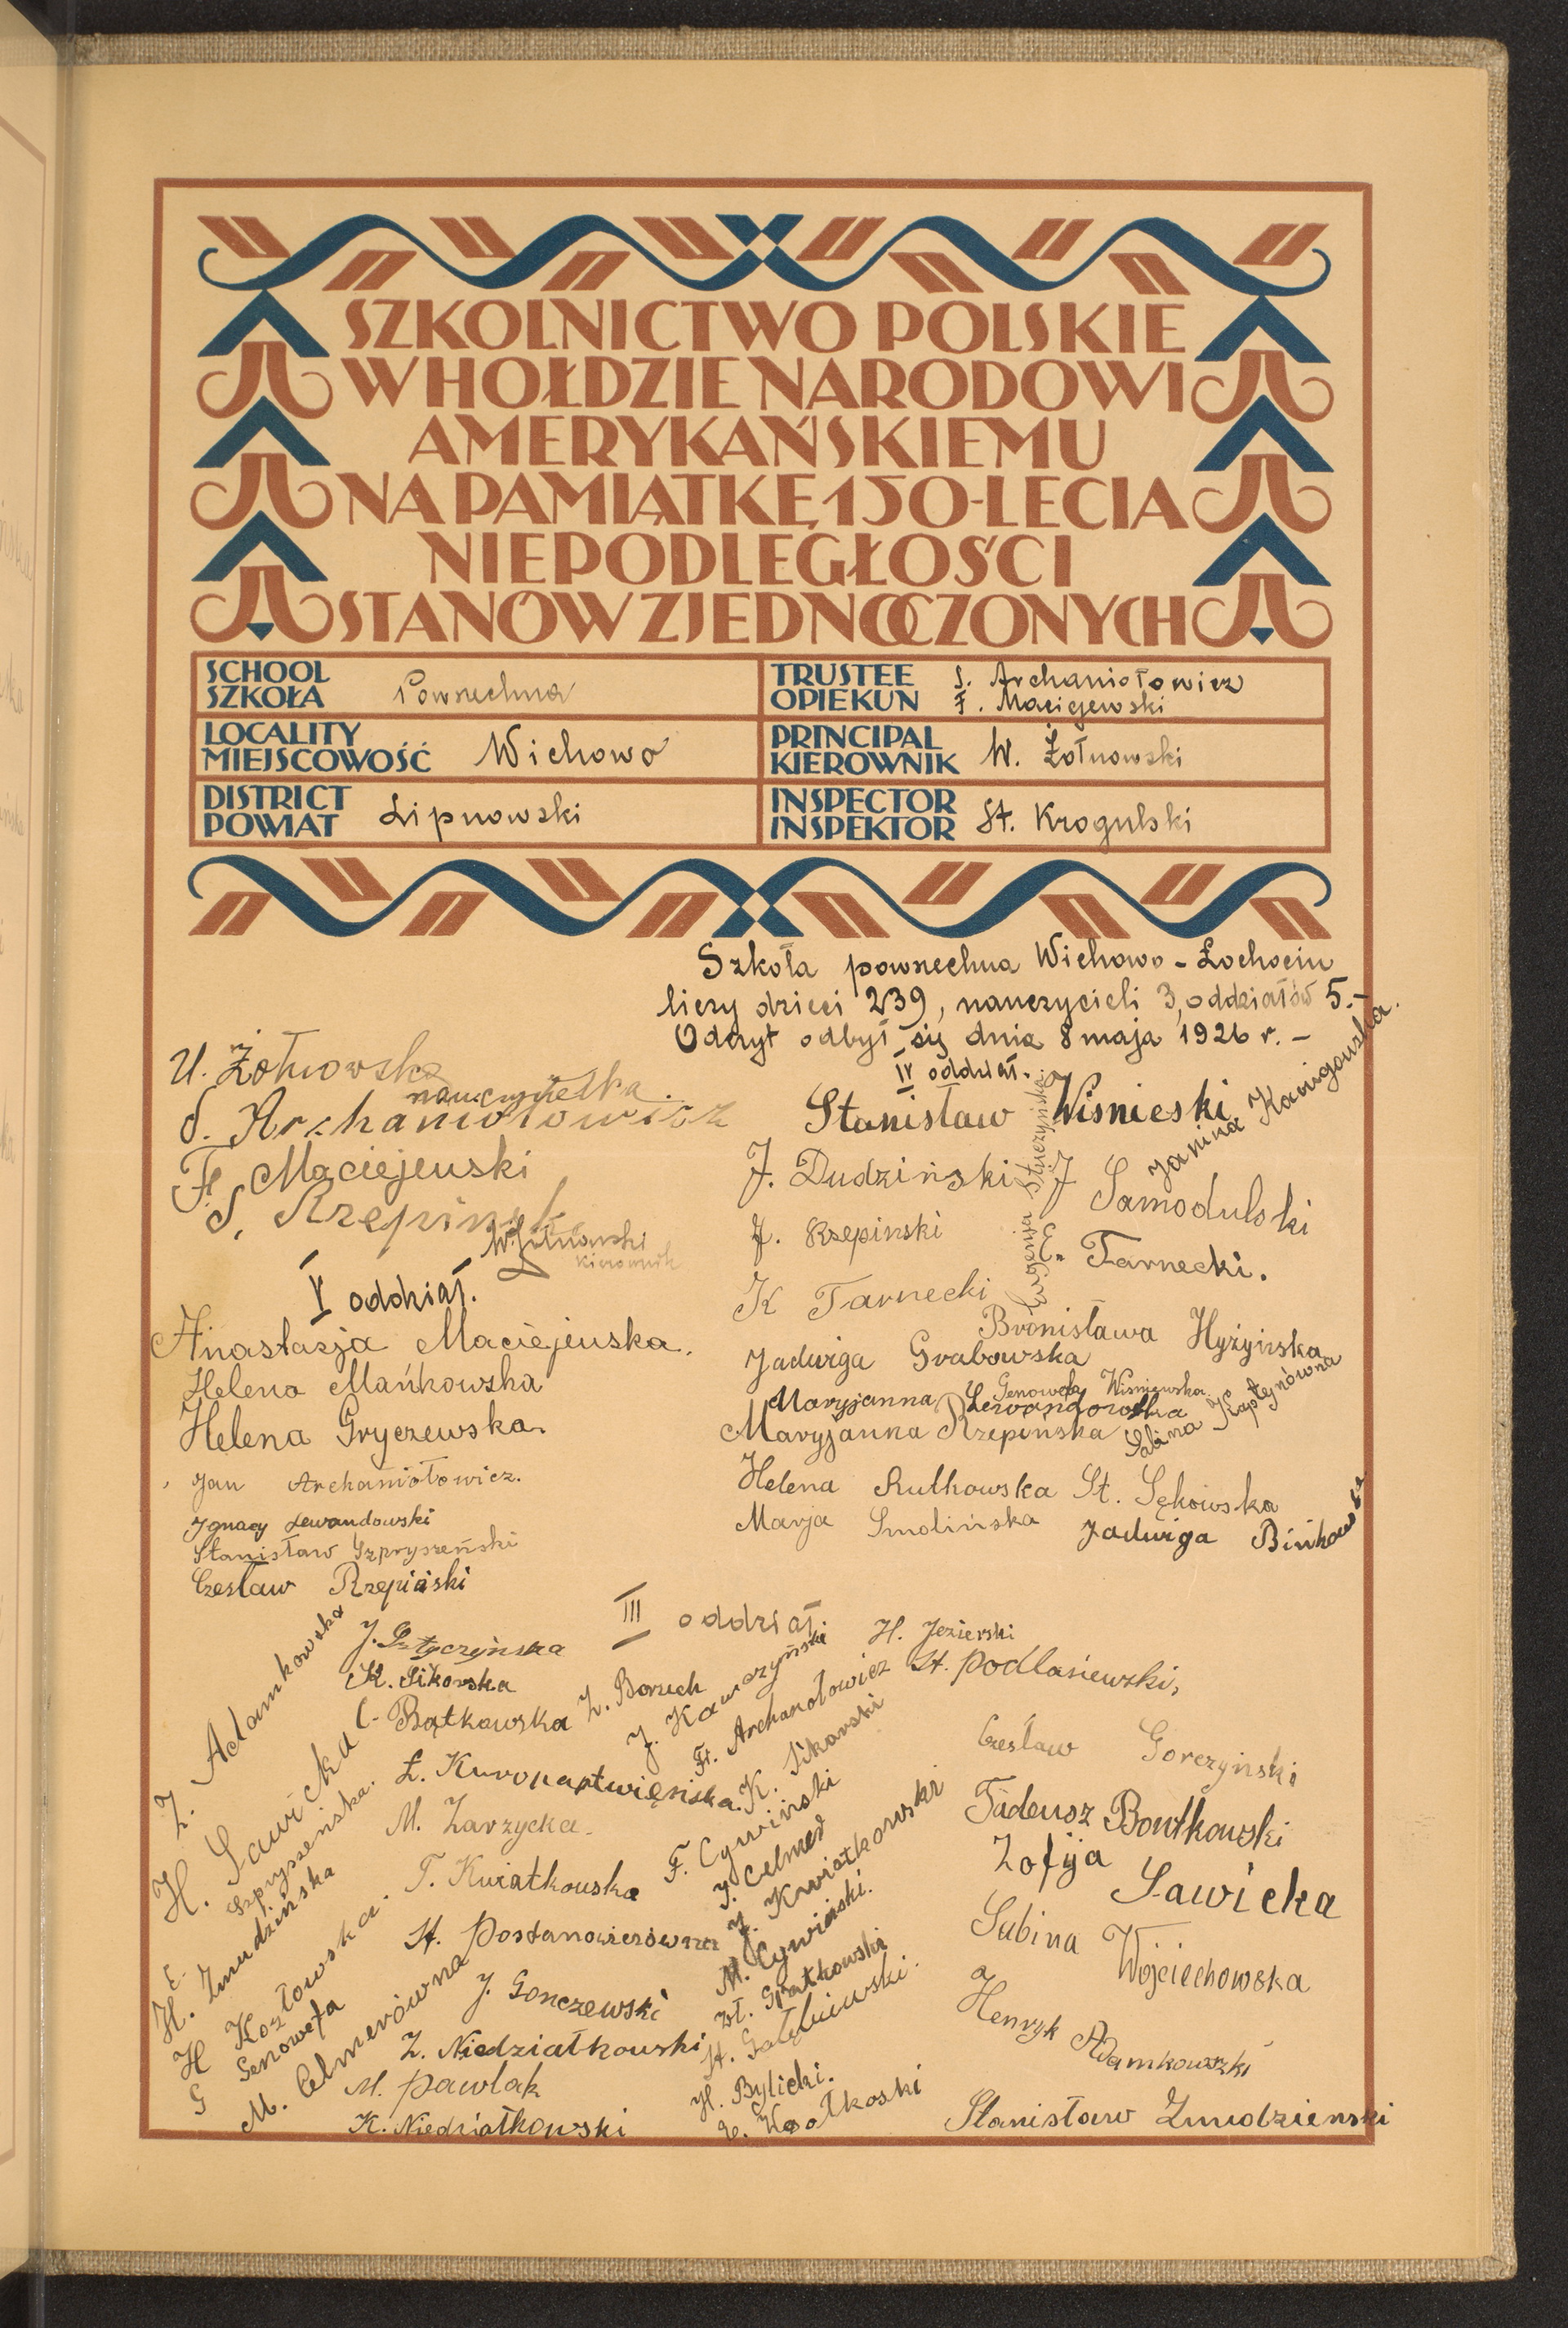 SZKOLNICTWO POLSKIE
W HOŁDZIE NARODOWI
AMERYKAŃSKIEMU
NA PAMIĄTKĘ 150-LECIA
NIEPODLEGŁOŚCI
STANÓW ZJEDNOCZONYCH
SCHOOL
SZKOŁA Powszechna
TRUSTEE
OPIEKUN S. Archaniołowicz
F. Maciejewski
LOCALITY
MIEJSCOWOŚĆ Wichowo
PRINCIPAL
KIEROWNIK W. Żołnowski
DISTRICT
POWIAT Lipnowski
INSPECTOR
INSPEKTOR St. Krogulski
Szkoła powszechna Wichowo - Łochocin
liczy dzieci 239, nauczycieli 3, oddziałów 5.-
Odczyt odbył się dnia 8 maja 1926 r. -
U. Żołnowska
nauczycielka.
S. Archaniołowicz
Fr. Maciejewski
S. Rzepiński
W. Żołnowski
kierownik
V oddział.
Anastazja Maciejewska.
Helena Mańkowska
Helena Gryczewska.
Jan Archaniołowicz.
Ignacy Lewandowski
Stanisław Szpryszeński
Czesław Rzepiński
IV oddział.
Stanisław Wisnieski
Janina
J. Dudziński
J Samodulski
J. Rzepinski
Tarnecki.
K Tarnecki
Eugenja
Bronisława Hyżyńska
Jadwiga Grabowska
Genowefa Wiśniewska
Maryjanna Lewandowska
Maryjanna Rzepinska
Sabina Kaptejnówna
Helena Rutkowska
St. Sękowska
Marja Smolińska
Jadwiga Binkowska
III oddział.
Z. Adamkowska
H. Sawicka
E. Szpryszeńska.
H. Zmudzińska
H Kozłowska.
G Genowefa
M. Celmerówna
K. Sikorska
C. Bątkowska
Ł. Kuropatwięńska.
M. Zarzycka.
T. Kwiatkowska
St. Postanowiczówna
J. Gonczewski
Z. Niedziałkowski
M. Pawlak
K. Niedziałkowski
Z. Borzuch
J. Kawczyński
Fr. Archanołowicz
K. Sikorski
F. Cywiński
J. Celmer
J. Kwiatkowski
M. Cywiński.
St. Gołębiewski.
H. Bylicki.
H. Jezierski
St. Podlasiewski,
Czesław Gorczyński
Tadeusz Bontkowski
Zofija Sawicka
Sabina Wojciechowska
Henryk Adamkowski
Stanisław Zmudzienski